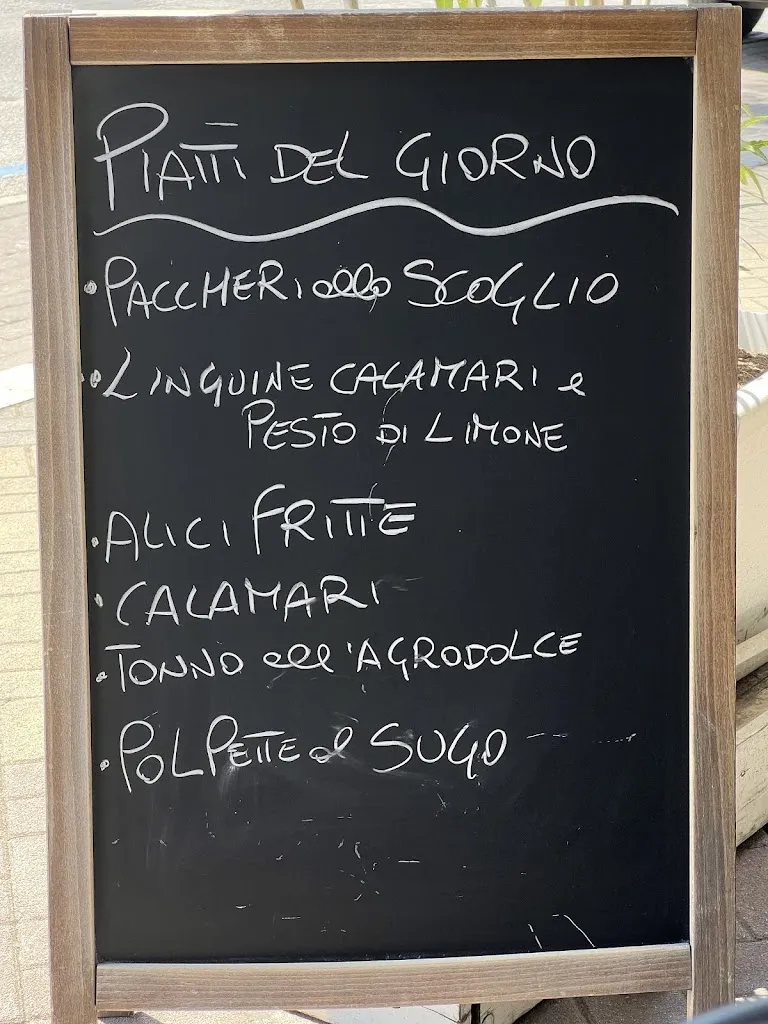 PIATTI DEL GIORNO
• PACCHERI allo SCOGLIO
• LINGUINE CALAMARI e
PESTO DI LIMONE
• ALICI FRITTE
• CALAMARI
• TONNO all'AGRODOLCE
• POLPETTE al SUGO